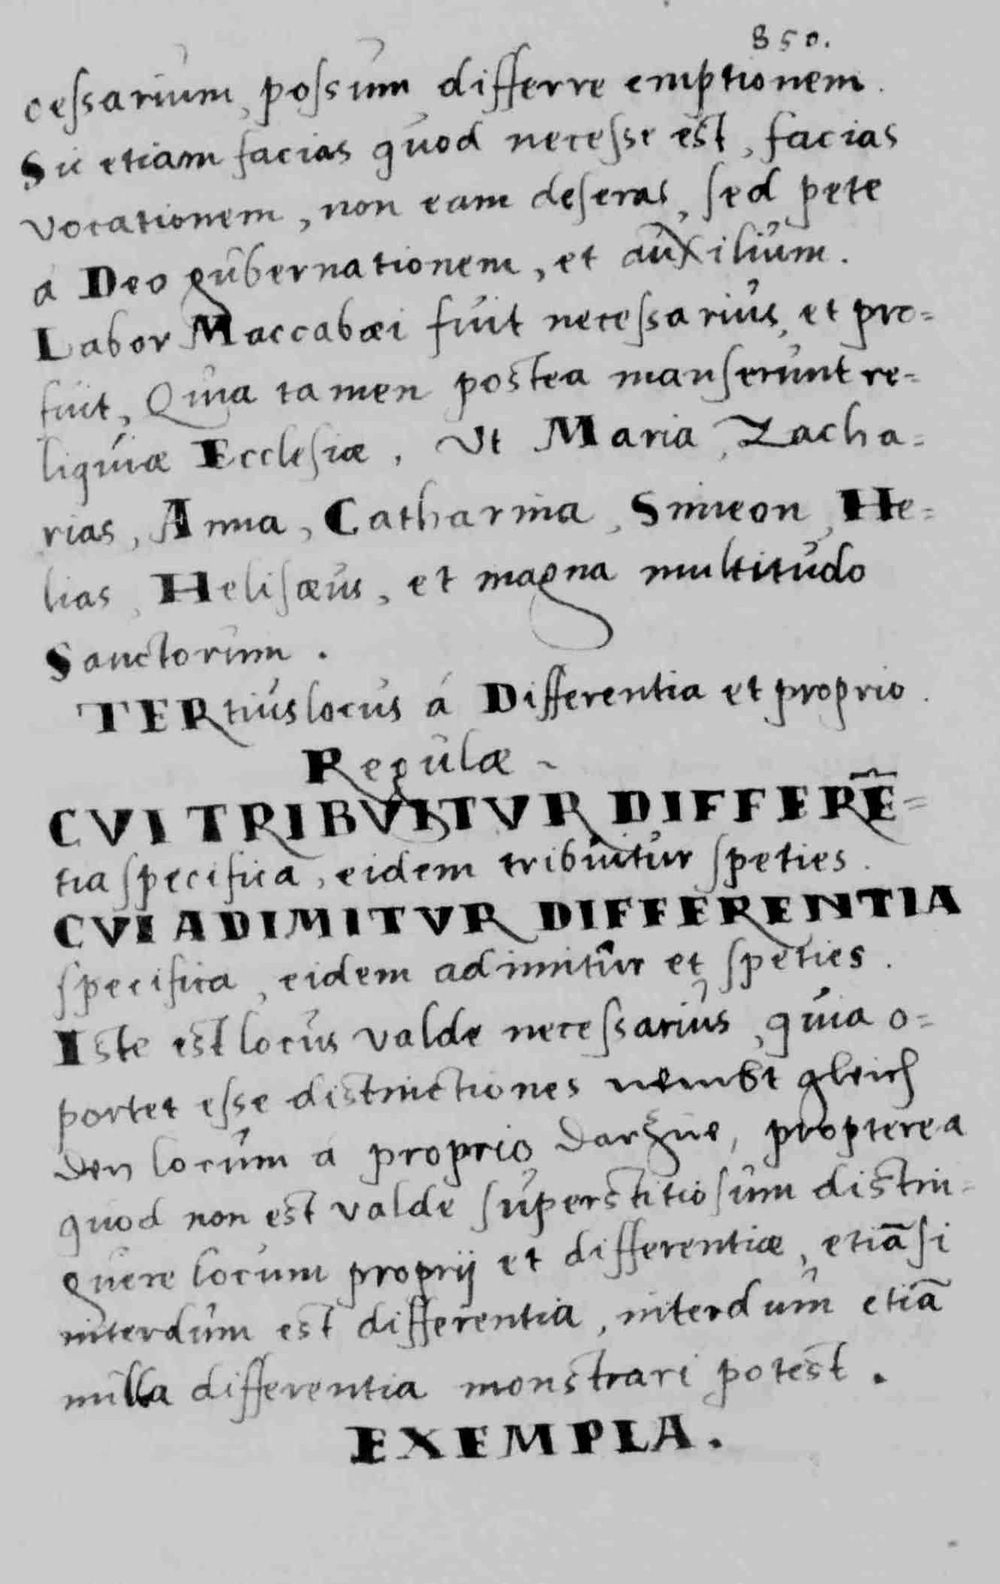 850.
cessarium, possum differre emptionem.
Sic etiam facias quod necesse est, facias
vocationem, non eam deseras, sed pete
á Deo gubernationem, et auxilium.
Labor Maccabæi fuit necessarius, et pro=
fuit, Quia tamen postea manserunt re=
liquiæ Ecclesiæ, Vt Maria, Zacha=
rias, Anna, Catharina, Simeon, He=
lias, Helisæus, et magna multitudo
Sanctorum.
TERtius locus á Differentia et proprio.
Regulæ
CVI TRIBVITVR DIFFERĒ=
tia specifica, eidem tribuitur speties.
CVI ADIMITVR DIFFERENTIA
specifica, eidem adimitur et speties.
Iste est locus valde necessarius, quia o=
portet esse distinctiones nembt gleich
den locum á proprio darzue, propterea
quod non est valde superstitiosum distin=
guere locum proprij et differentiæ, etiāsi
interdum est differentia, interdum etiā
nulla differentia monstrari potest.
EXEMPLA.